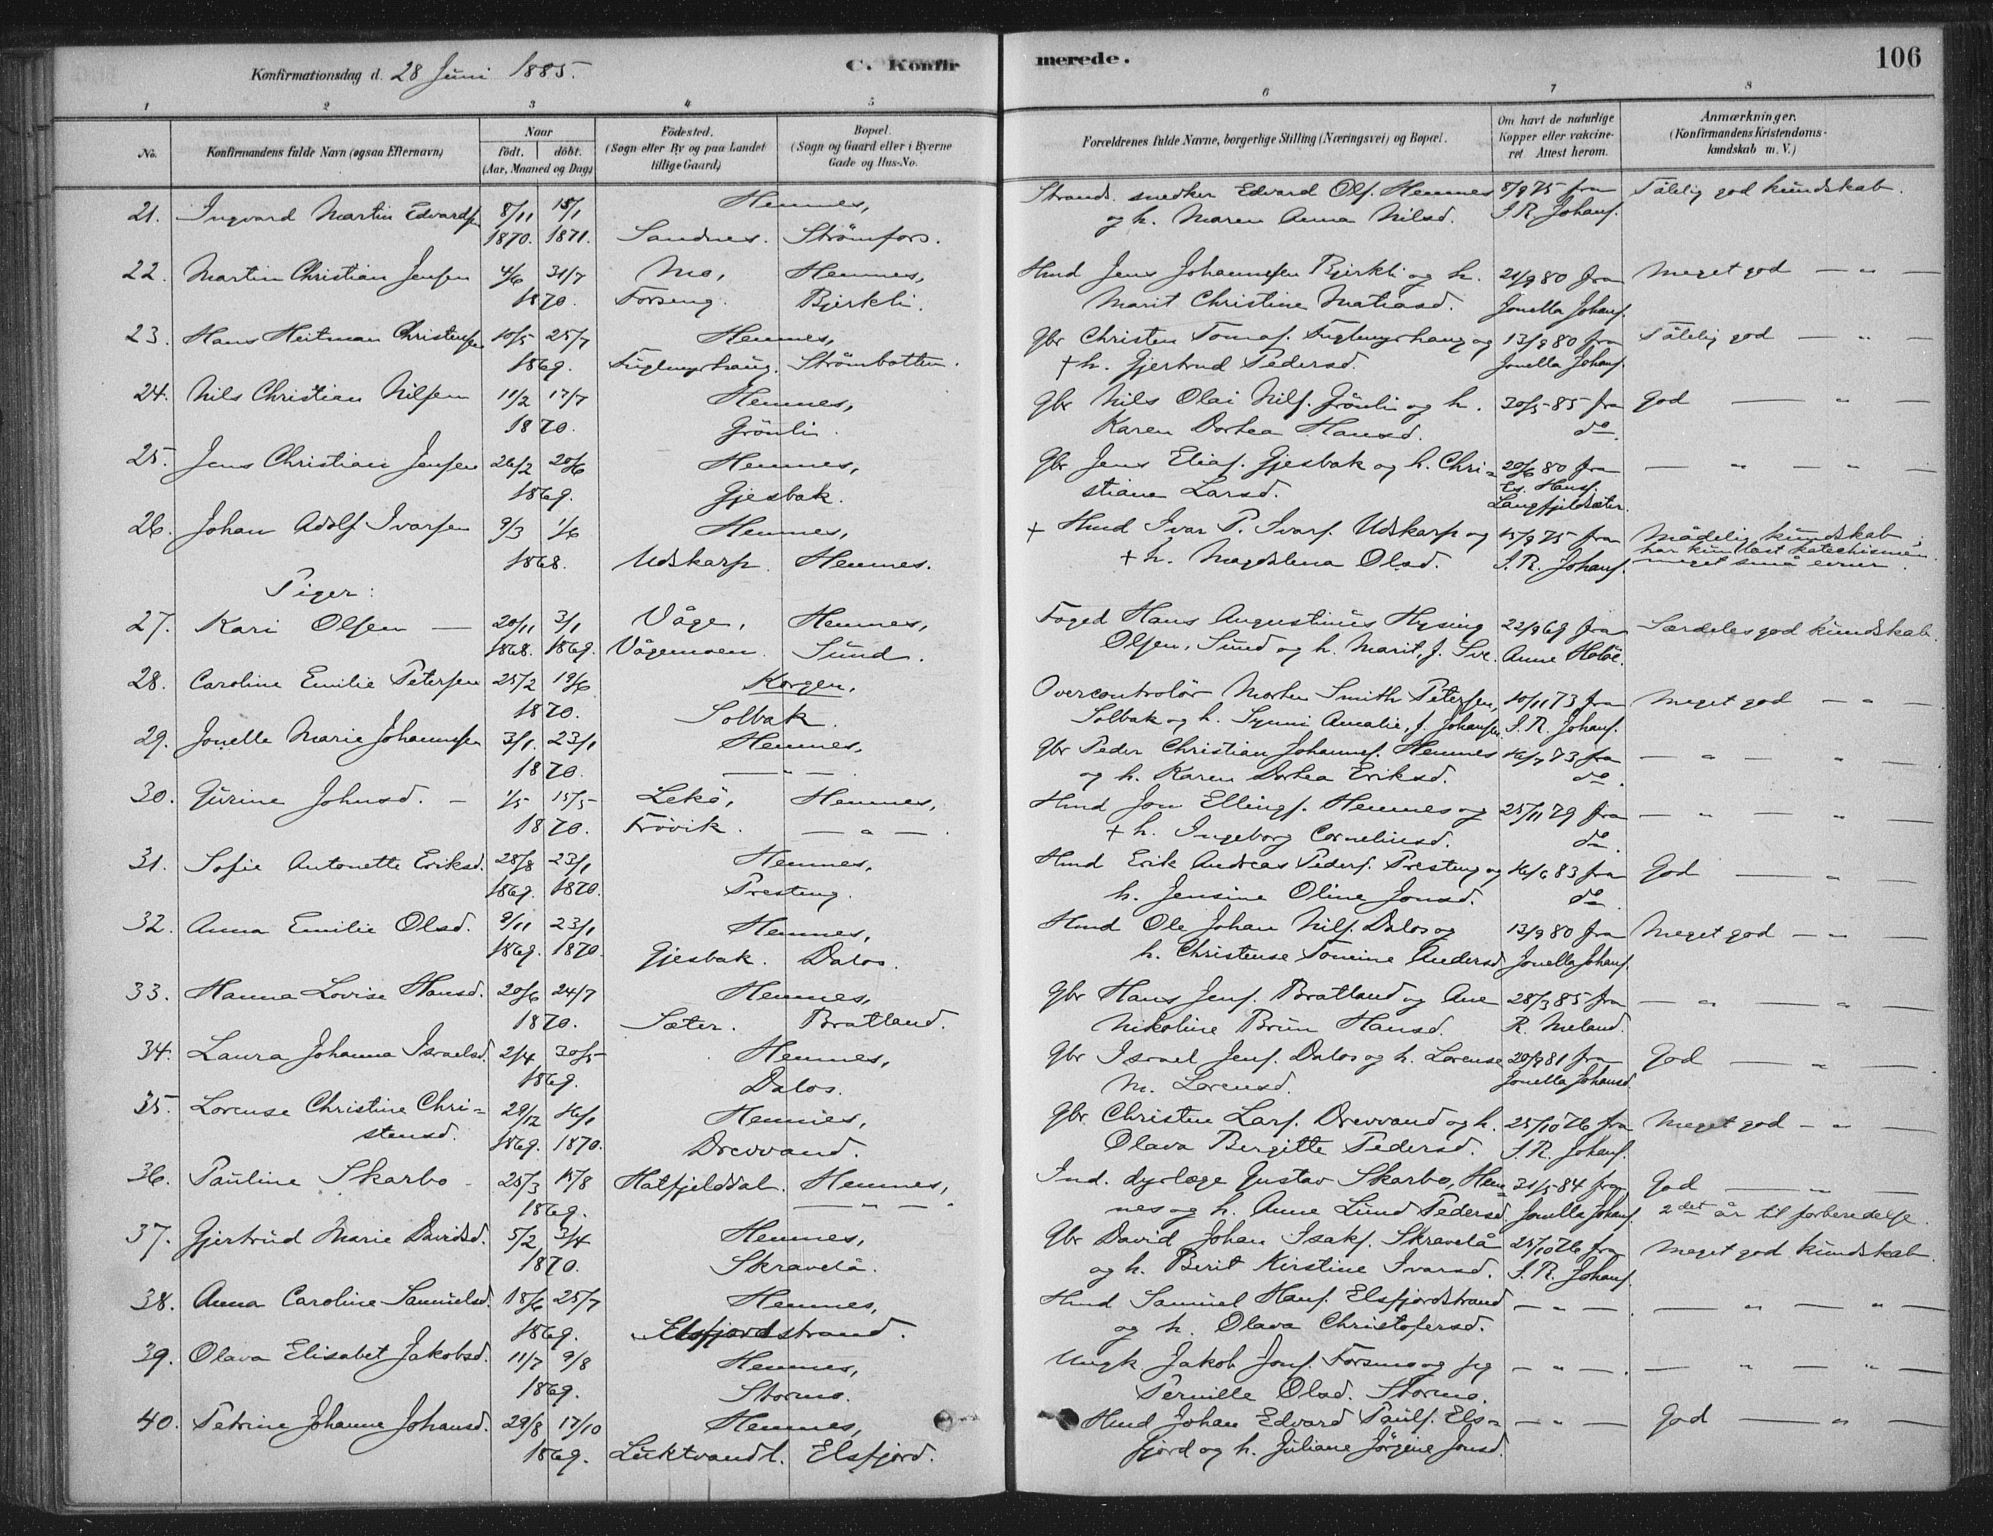 Konfirmationsdag d. 28 Juni 1885.
C. Konfir
merede.
106
1 2 3 4 5 6 7 8
No.
Konfirmandens fulde Navn (ogsaa Efternavn)
Naar
født. døbt.
(Aar, Maaned og Dag)
Fødested.
(Sogn eller By og paa Landet
tillige Gaard)
Bopæl.
(Sogn og Gaard eller i Byerne
Gade og Hus-No.
Forældrenes fulde Navne, borgerlige Stilling (Næringsvei) og Bopæl.
Om havt de naturlige
Kopper eller vakcine-
ret. Attest herom.
Anmærkninger.
(Konfirmandens Kristendoms-
kundskab m. V.)
21. Ingvard Martin Edvardsen 8/11 15/1 Hemnes, Strands. snedker Edvard Ols. Hemnes 8/9 75 fra Tålelig god kundskab.
1870. 1871. Sandnes. Strømfors. og h. Maren Anna Nilsd. I. R. Johans.
22. Martin Christian Jensen 4/6 31/7 Mo, Hemnes, Hmd Jens Johannesen Bjerkli og h. 21/9 80 fra Meget god — „ —
1870. Forseng. Bjerkli. Marit Christine Matiasd. Jonella Johans.
23. Hans Heitman Christensen 10/5 25/7 Hemnes, Gbr Christen Tomas. Fuglmyrhaug og 13/9 80 fra Tålelig god — „ —
1869. Fuglmyrhaug. Strømbotten. + h. Gjertrud Pedersd. Jonella Johans.
24. Nils Christian Nilsen 11/2 17/7 Hemnes, Gbr Nils Olai Nils. Grønli og h. 30/5 85 fra God — „ —
1870. Grønli. Karen Dorthea Hansd. do.
25. Jens Christian Jensen 26/2 20/6 Hemnes, Gbr Jens Elias. Gjesbak og h. Chri= 20/6 80 fra — „ — „ —
1869. Gjesbak. stiane Larsd. Es. Hans.
Langfjeldsæter.
26. Johan Adolf Ivarsen 9/3 1/6 Hemnes, + Hmd Ivar P. Ivars. Udskarp og 15/9 75 fra Mådelig kundskab;
har kun læst katechismen
1868. Udskarp. Hemnes. + h. Magdalena Olsd. I. R. Johans. meget små evner.
Piger:
27. Kari Olsen — 20/11 3/1 Våge, Hemnes, Foged Hans Augustinus Hysing 22/9 69 fra Særdeles god kundskab.
1868. 1869. Vågemoen. Sund. Olsen, Sund og h. Marit, f. Sve. Anne Holøe.
28. Caroline Emilie Petersen 25/2 19/6 Korgen, Overcontrolør Morten Smith Petersen, 10/11 73 fra Meget god — „ —
1870. Solbak. Solbak og h. Synni Amalie, f. Johansen. I. R. Johans.
29. Jonelle Marie Johannesen 3/1. 23/1 Hemnes, Gbr Peder Christian Johannes. Hemnes 16/7 73 fra — „ — „ —
1870. — „ — og h. Karen Dorthea Eriksd. do.
30. Gurine Johnsd. — 1/5 15/5 Lekø, Hemnes, Hmd Jon Ellings. Hemnes og 25/11 79 fra — „ — „ —
1870. Frøvik. — „ — + h. Ingeborg Corneliusd. do.
31. Sofie Antonette Eriksd. 28/8 23/1 Hemnes, Hmd Erik Andreas Peders. Presteng og 16/6 83 fra God — „ —
1869. 1870. Presteng. h. Jensine Oline Jonsd. do.
32. Anna Emilie Olsd. 9/11 23/1 Hemnes, Hmd Ole Johan Nils. Dalos og 13/9 80 fra Meget god — „ —
1869. 1870. Gjesbak. Dalos. h. Christense Tomine Andersd. Jonella Johans.
33. Hanna Lovise Hansd. 20/6 24/7 Hemnes, Gbr Hans Jens. Bratland og Ane 28/3 85 fra — „ — „ —
1870. Sæter. Bratland. Nikoline Brun Hansd. R. Meland.
34. Laura Johanna Israelsd. 2/4 30/5 Hemnes, Gbr Israel Jens. Dalos og h. Lorense 20/9 81 fra God — „ —
1869. Dalos. M. Lorensd. Jonella Johansd.
35. Lorense Christine Chri= 29/12 16/1 Hemnes, Gbr Christen Lars. Drevvand og h. 25/10 76 fra Meget god — „ —
stensd. 1869. 1870. Drevvand. Olava Bergitte Pedersd. I. R. Johans.
36. Pauline Skarbo — 25/3 15/8 Hatfjelddal. Hemnes, Ind. dyrlæge Gustav Skarbo, Hem= 31/5 84 fra God — „ —
1869. — „ — nes og h. Anne Lund Pedersd. Jonella Johans. 2det år til forberedelse.
37. Gjertrud Marie Davidsd. 5/2 3/4 Hemnes, Gbr David Johan Isaks. Skravelå 25/10 76 fra Meget god kundskab.
1870. Skravelå. og h. Berit Kirstine Ivarsd. I. R. Johans.
38. Anna Caroline Samuelsd. 18/6 25/7 Hemnes, Hmd Samuel Hans. Elsfjordstrand — „ — . — „ — „ —
1869. Elsfjordstrand. og h. Olava Christofersd.
39. Olava Elisabet Jakobsd. 11/7 9/8 Hemnes, Ungk. Jakob Jons. Forsmo og pig — „ — . — „ — „ —
1869. Stormo. Pernille Olsd. Stormo.
40. Petrine Johanne Johansd. 29/8 17/10 Hemnes, Hmd Johan Edvard Pauls. Els= — „ — God — „ —
1869. Luktvandl. Elsfjord. fjord og h. Juliane Jørgine Jonsd.